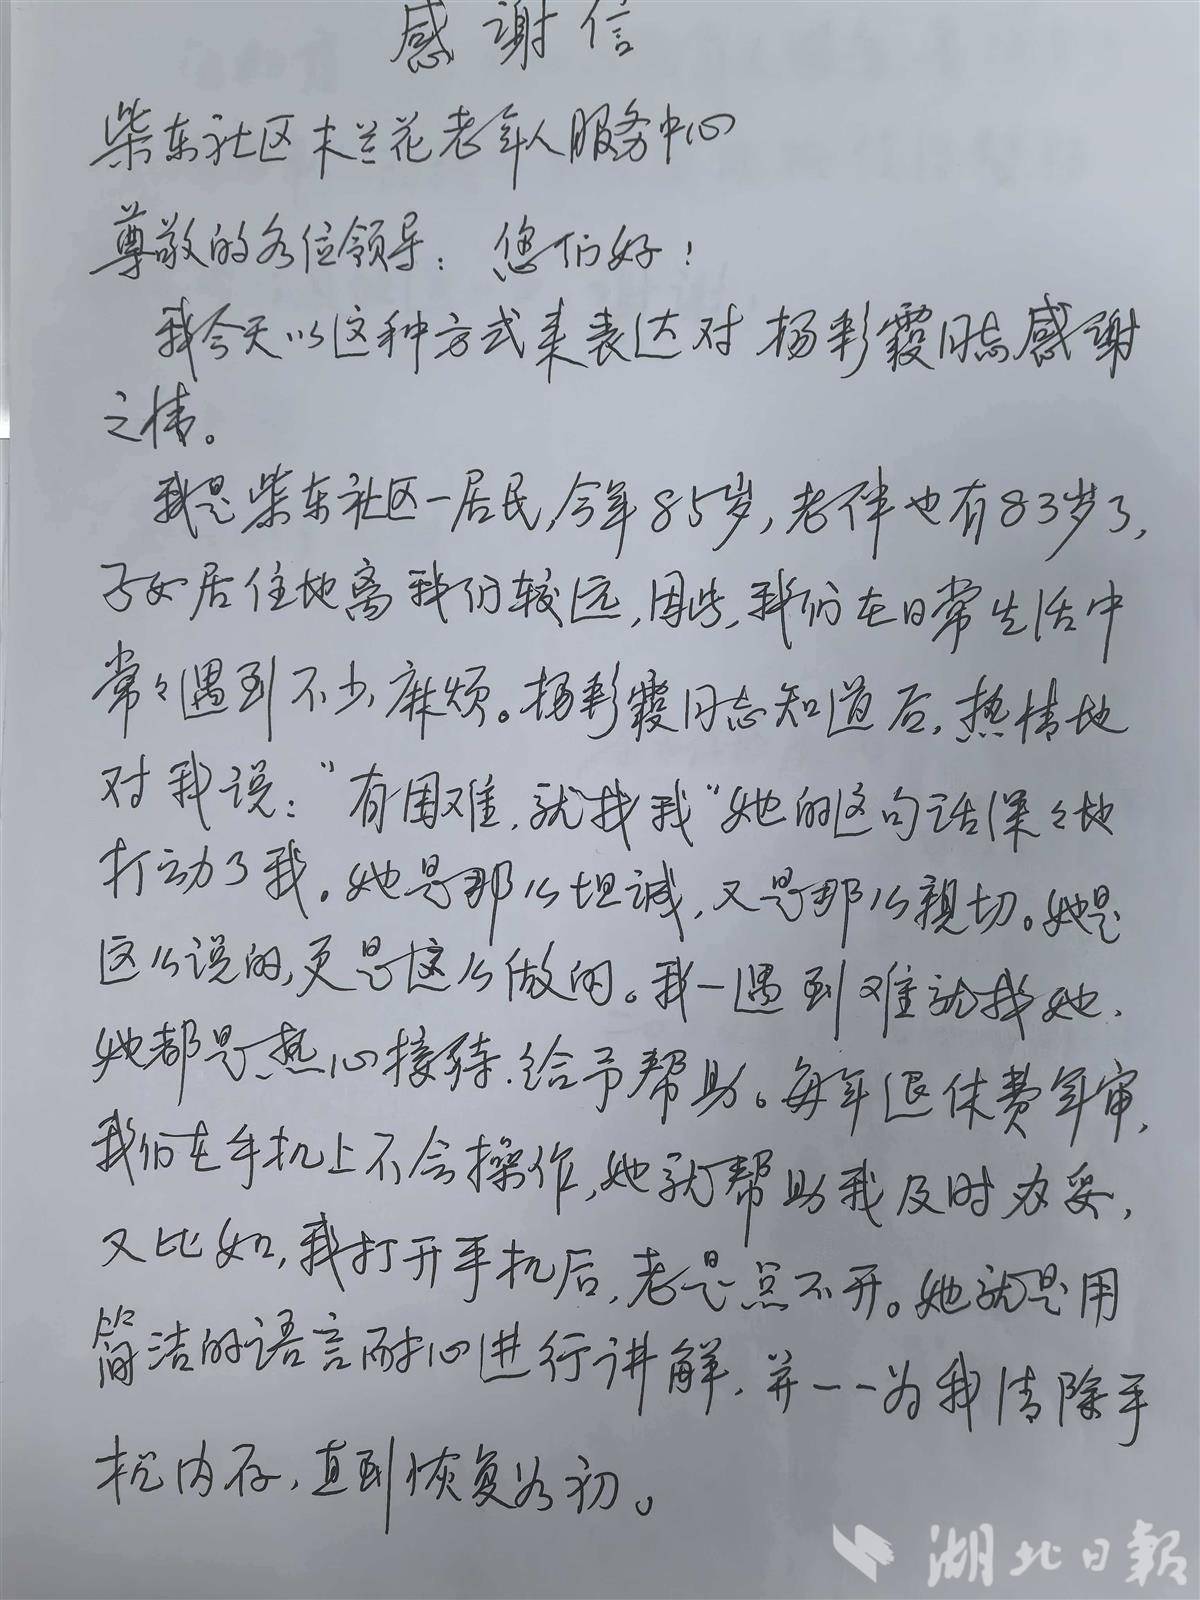 感谢信
柴东社区木兰花老年人服务中心
尊敬的各位领导：您们好！
我今天以这种方式来表达对杨彩霞同志感谢
之情。
我是柴东社区一居民,今年85岁,老伴也有83岁了,
子女居住地离我们较远,因此,我们在日常生活中
常々遇到不少麻烦。杨彩霞同志知道后,热情地
对我说："有困难,就找我"她的这句话深々地
打动了我。她是那么坦诚,又是那么親切。她是
这么说的,更是这么做的。我一遇到难就找她,
她都是热心接待,给予帮助。每年退休费年审,
我们在手机上不会操作,她就帮助我及时办妥,
又比如,我打开手机后,老是点不开。她就是用
简洁的语言耐心进行讲解,并一一为我清除手
机内存,直到恢复如初。
湖北日报